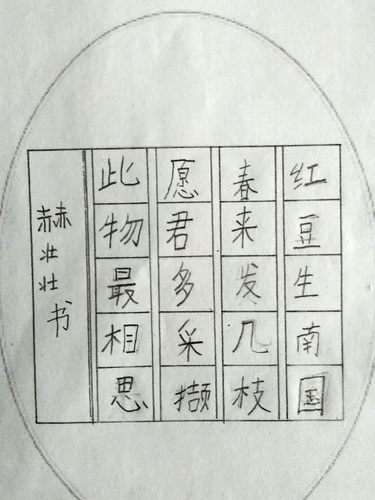 红豆生南国
春来发几枝
愿君多采撷
此物最相思
赫壮壮书